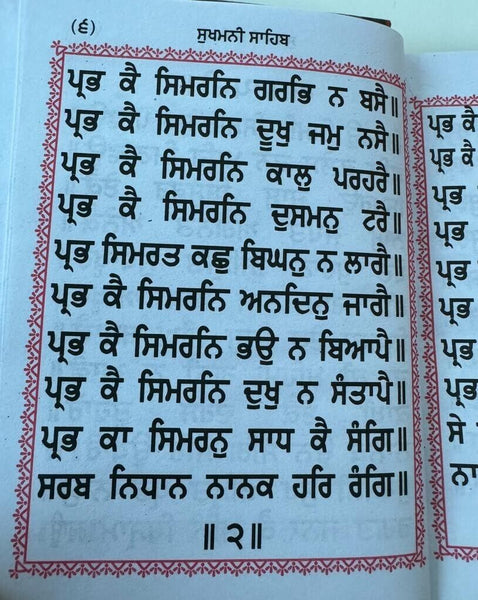 (੬)
ਸੁਖਮਨੀ ਸਾਹਿਬ
ਪ੍ਰਭ ਕੈ ਸਿਮਰਨਿ ਗਰਭਿ ਨ ਬਸੈ॥
ਪ੍ਰਭ ਕੈ ਸਿਮਰਨਿ ਦੂਖੁ ਜਮੁ ਨਸੈ॥
ਪ੍ਰਭ ਕੈ ਸਿਮਰਨਿ ਕਾਲੁ ਪਰਹਰੈ॥
ਪ੍ਰਭ ਕੈ ਸਿਮਰਨਿ ਦੁਸਮਨੁ ਟਰੈ॥
ਪ੍ਰਭ ਸਿਮਰਤ ਕਛੁ ਬਿਘਨੁ ਨ ਲਾਗੈ॥
ਪ੍ਰਭ ਕੈ ਸਿਮਰਨਿ ਅਨਦਿਨੁ ਜਾਗੈ॥
ਪ੍ਰਭ ਕੈ ਸਿਮਰਨਿ ਭਉ ਨ ਬਿਆਪੈ॥
ਪ੍ਰਭ ਕੈ ਸਿਮਰਨਿ ਦੁਖੁ ਨ ਸੰਤਾਪੈ॥
ਪ੍ਰਭ ਕਾ ਸਿਮਰਨੁ ਸਾਧ ਕੈ ਸੰਗਿ॥
ਸਰਬ ਨਿਧਾਨ ਨਾਨਕ ਹਰਿ ਰੰਗਿ॥
॥੨॥
ਪ੍ਰਭ ਕੈ
ਪ੍ਰਭ ਕੈ
ਪ੍ਰਭ
ਪ੍ਰਭ
ਪ੍ਰਭ
ਪ੍ਰਭ
ਪ੍ਰਭ
ਪ੍ਰਭ
ਸੇ
ਨਾ